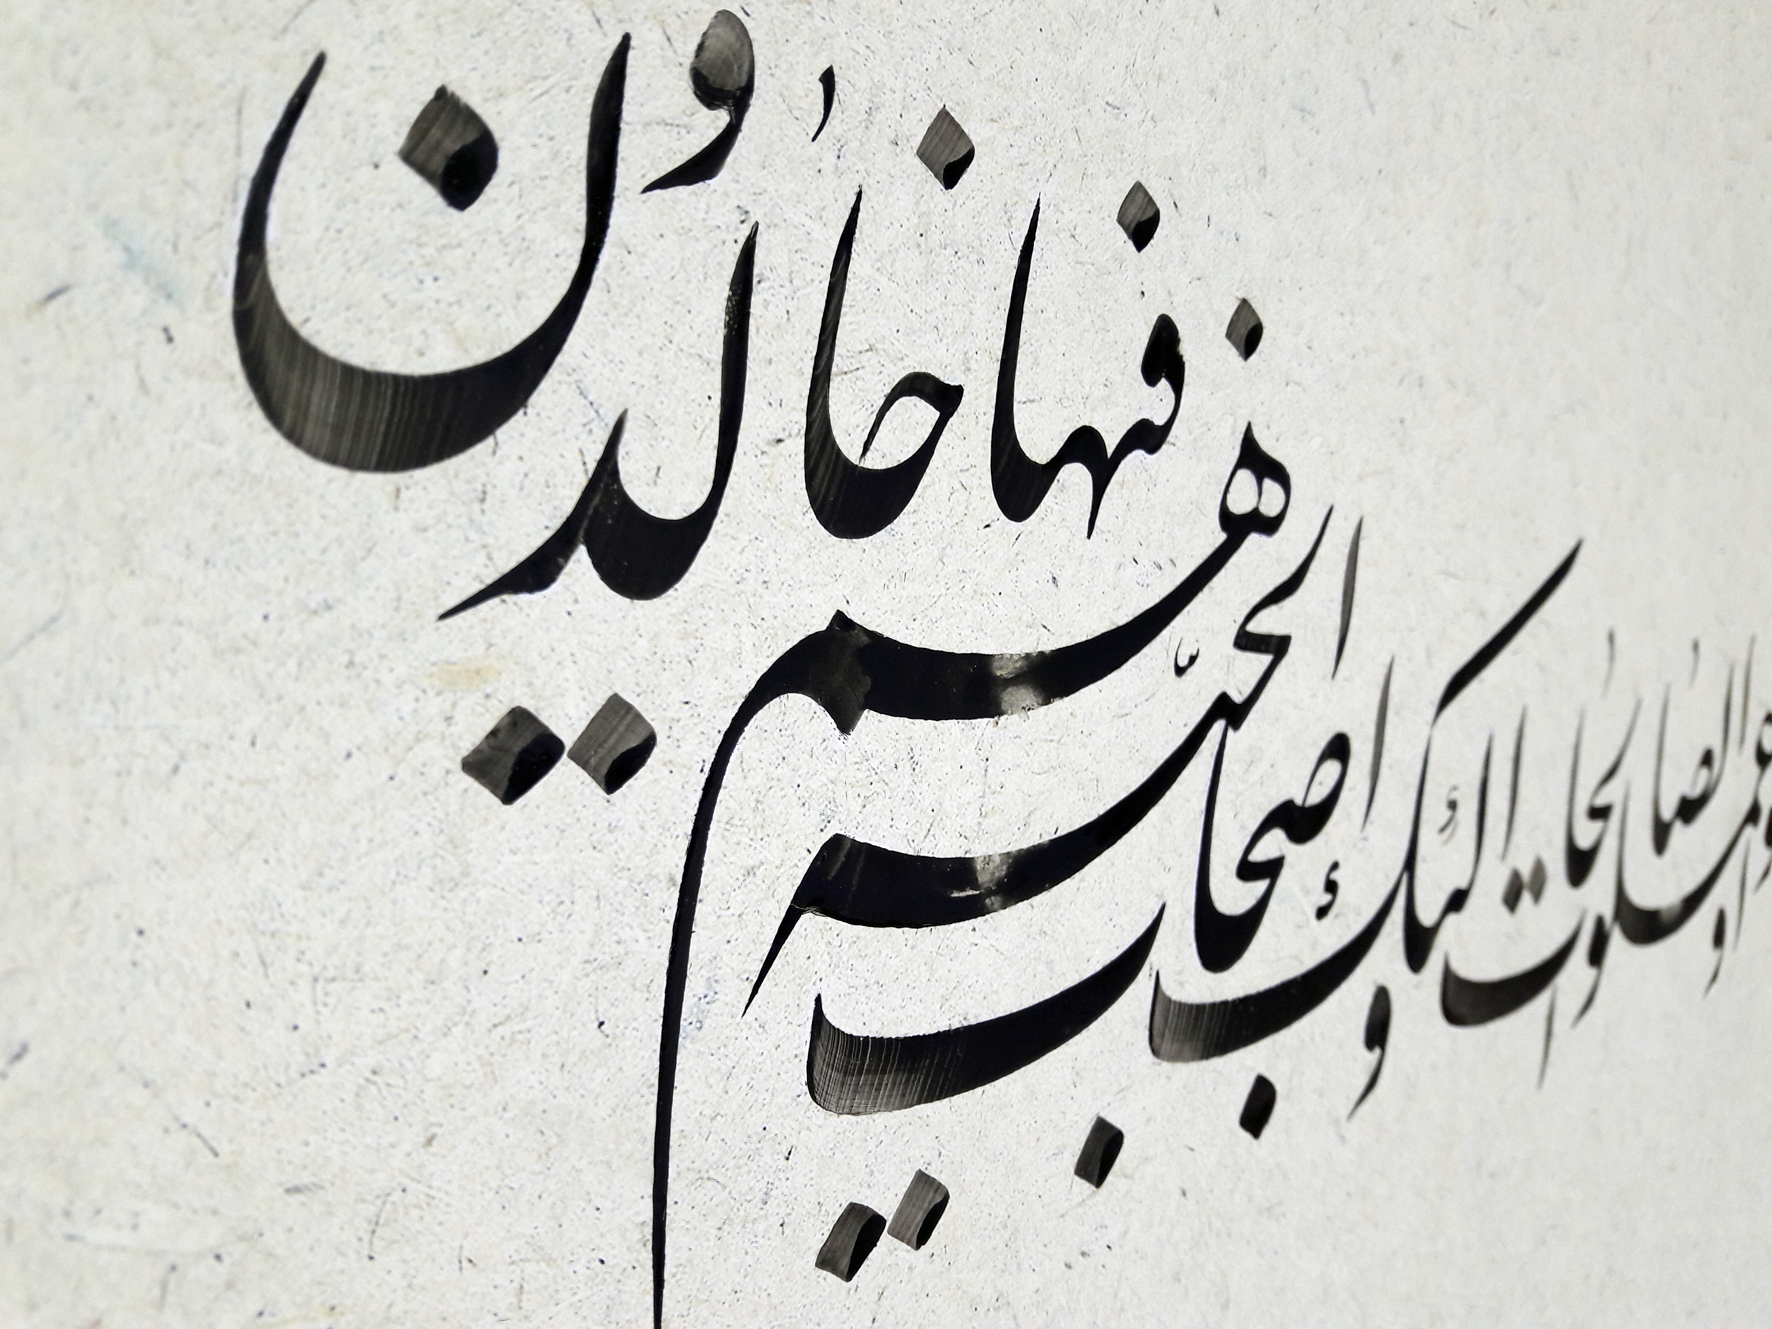 وعملوا الصالحات اولئك اصحاب الجنّة هم فيها خالدون